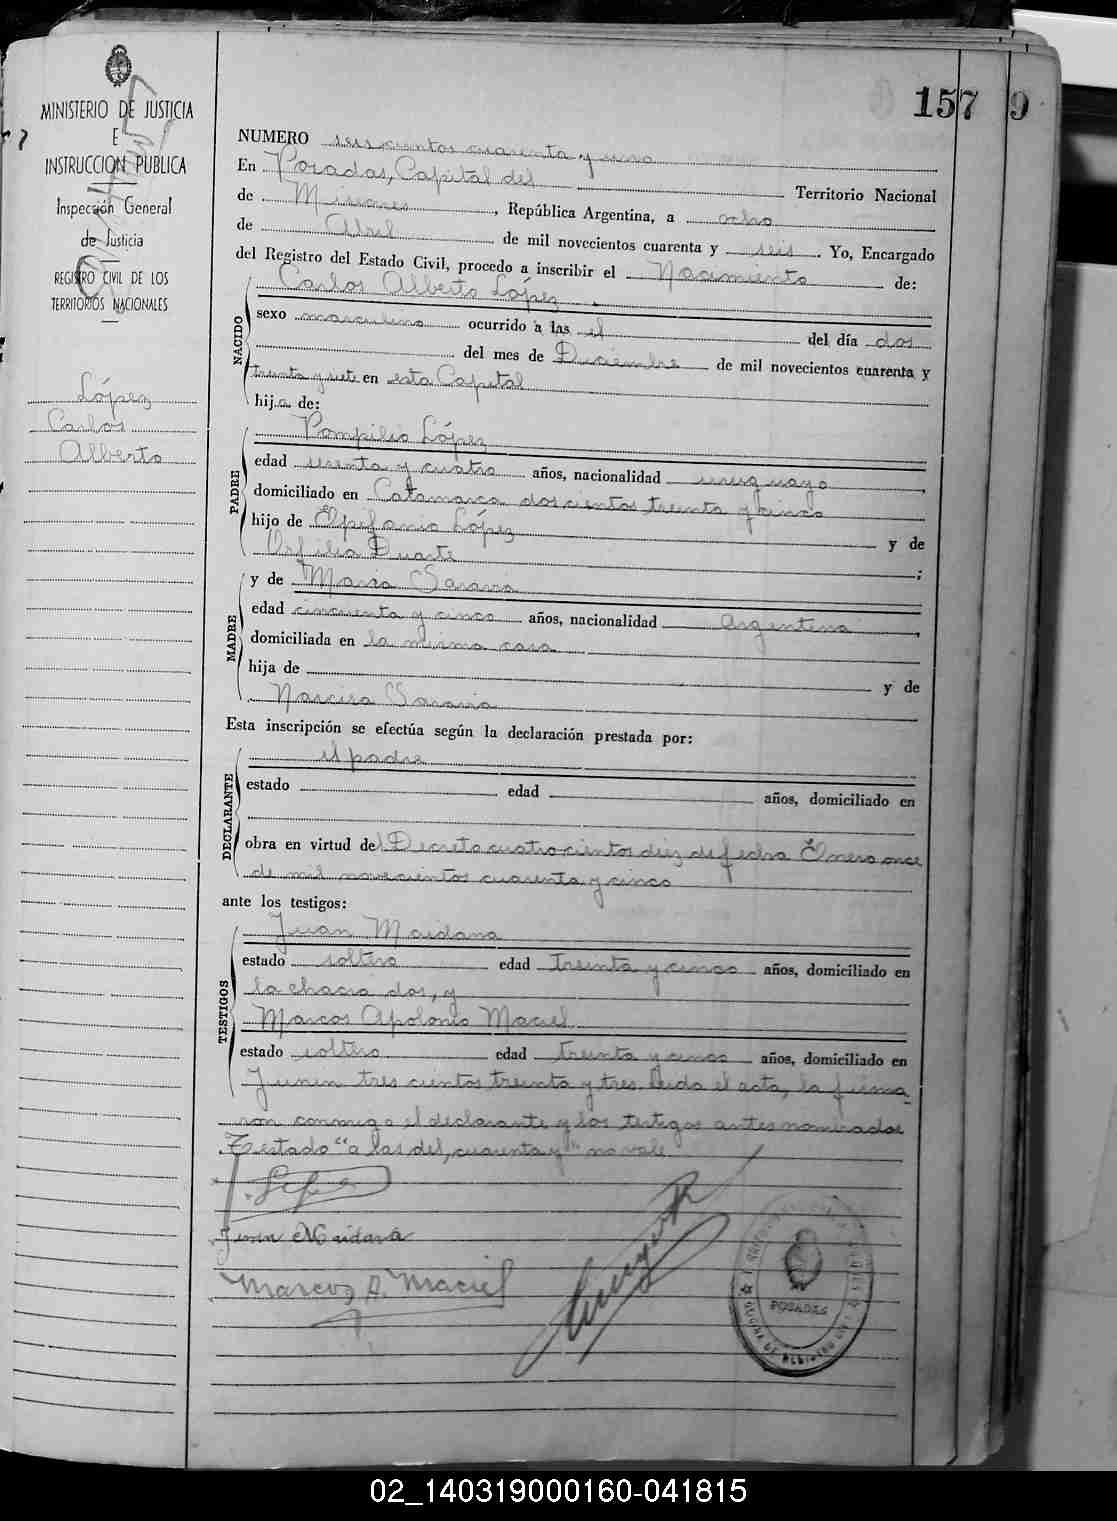 157 9
MINISTERIO DE JUSTICIA
E
INSTRUCCIÓN PUBLICA
Inspección General
de Justicia
REGISTRO CIVIL DE LOS
TERRITORIOS NACIONALES
López
Carlos
Alberto
NUMERO seiscientos cuarenta y uno
En Posadas, Capital del Territorio Nacional
de Misiones, República Argentina, a ocho
de Abril de mil novecientos cuarenta y seis. Yo, Encargado
del Registro del Estado Civil, procedo a inscribir el Nacimiento de:
NACIDO
Carlos Alberto López
sexo masculino ocurrido a las el del día dos
del mes de Diciembre de mil novecientos cuarenta y
treinta y siete en esta Capital
hijo de:
PADRE
Pompilio López
edad sesenta y cuatro años, nacionalidad uruguayo,
domiciliado en Catamarca doscientos treinta y cinco
hijo de Epifanio López y de
Orfilia Duarte;
MADRE
y de María Saravia
edad cincuenta y cinco años, nacionalidad Argentina,
domiciliada en la misma casa
hija de y de
Narcisa Saravia
Esta inscripción se efectúa según la declaración prestada por:
DECLARANTE
el padre
estado edad años, domiciliado en
obra en virtud del Decreto cuatrocientos diez de fecha Enero once
de mil novecientos cuarenta y cinco
ante los testigos:
TESTIGOS
Juan Maidana
estado soltero edad treinta y cinco años, domiciliado en
la chacra dos, y
Marcos Apolonio Maciel
estado soltero edad treinta y cinco años, domiciliado en
Junin trescientos treinta y tres. Leida el acta, la firma
ron conmigo el declarante y los testigos antes nombrados
Testado "a las del, cuarenta y" no vale
Juan Maidana
Marcos A. Maciel
POSADAS
02_140319000160-041815